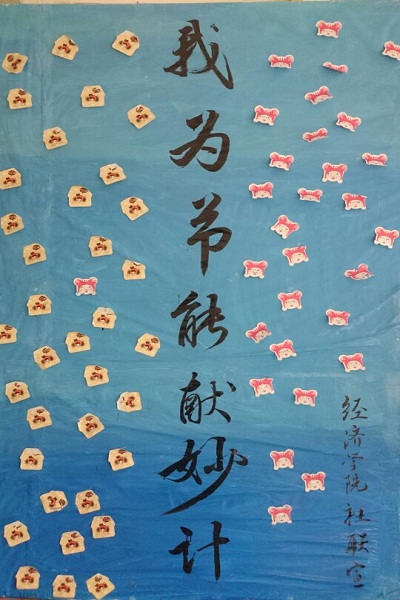 我为节能献妙计
经济学院社联宣